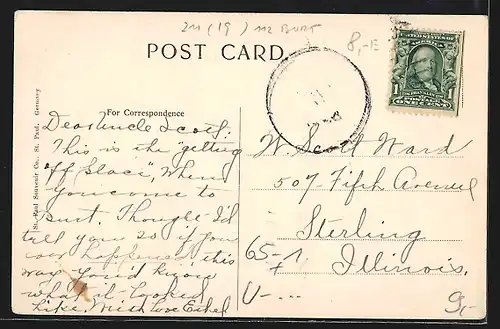 211 (19 ) 112 BURT
8,-E
POST CARD.
UNITED STATES OF
AMERICA
1
ONE CENT
For Correspondence
St. Paul Souvenir Co., St. Paul. Germany
Dear Uncle Scott:
This is the "getting
off place", when
you come to
Burt. Thought I'd
tell you so if you
ever happened this
way you'd know
what it looked
like. With Love Ethel
W. Scott Ward
507-Fifth Avenue
Sterling
Illinois.
65-1
U-...
9,-